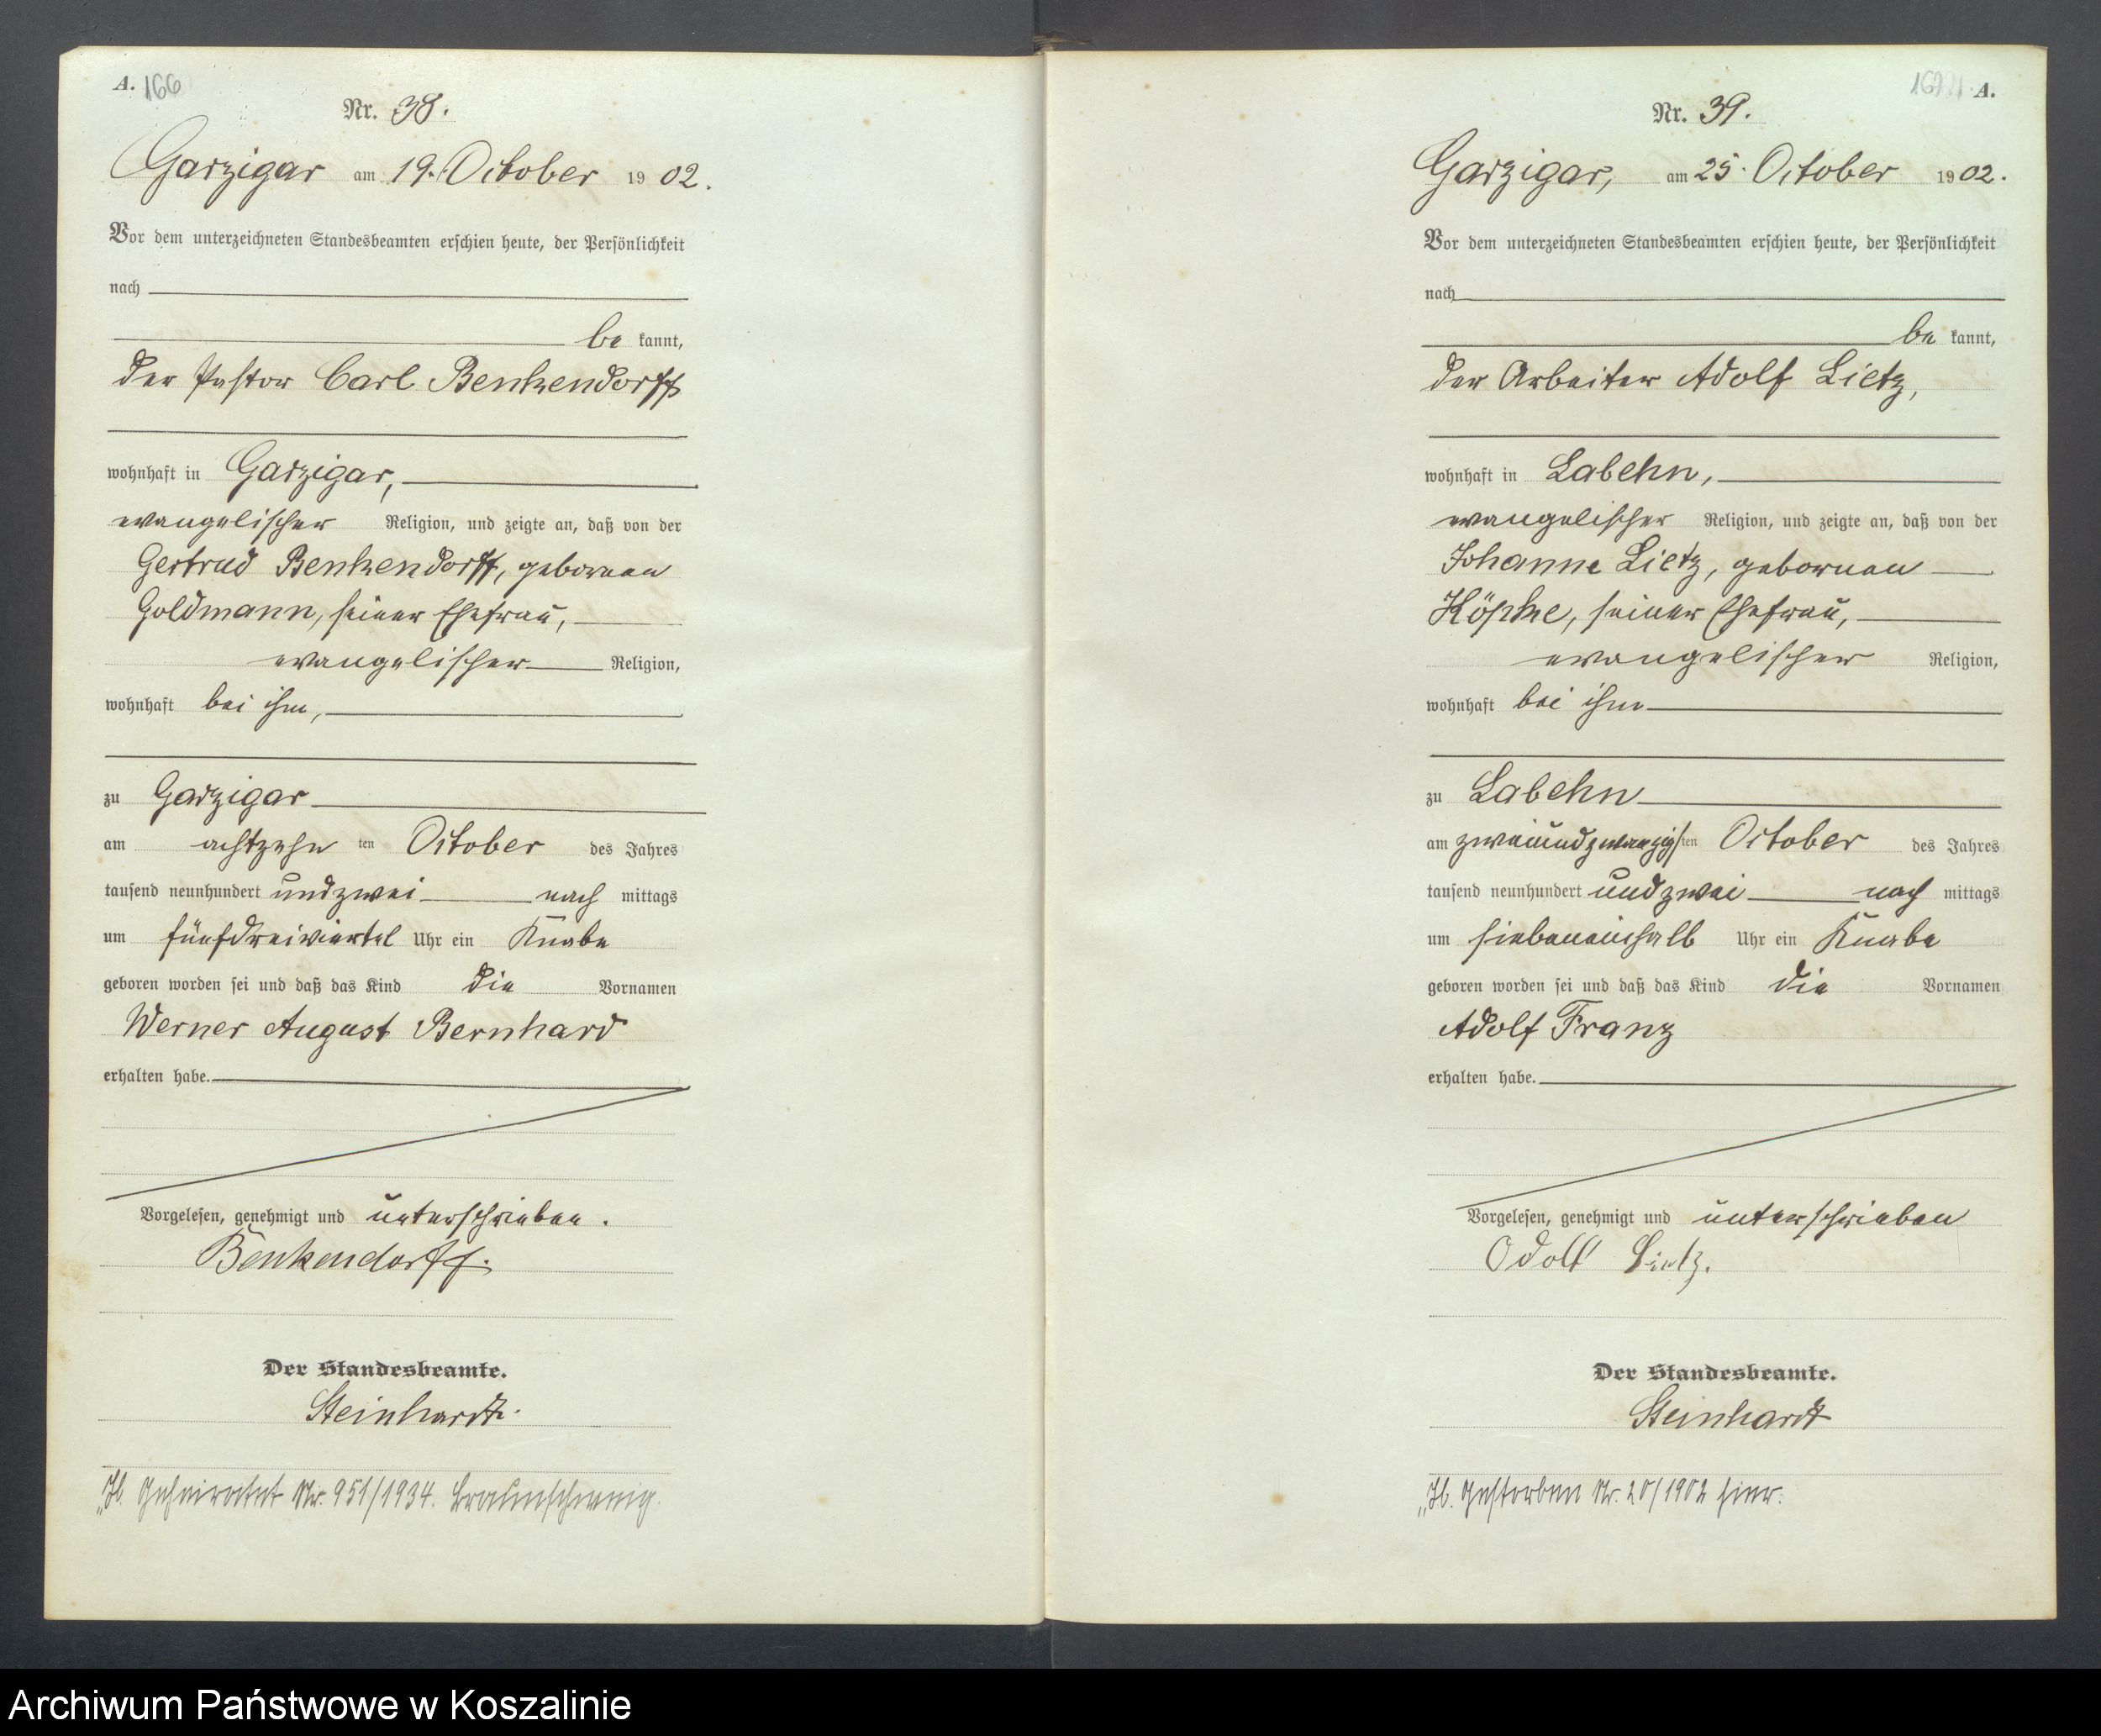 A. 166
Nr. 38.
Garzigar am 19. October 1902.
Vor dem unterzeichneten Standesbeamten erschien heute, der Persönlichkeit
nach
be kannt,
der Pastor Carl Benkendorff
wohnhaft in Garzigar,
evangelischer Religion, und zeigte an, daß von der
Gertrud Benkendorff, geborenen
Goldmann, seiner Ehefrau,
evangelischer Religion,
wohnhaft bei ihm,
zu Garzigar
am achtzehn ten October des Jahres
tausend neunhundert undzwei nach mittags
um fünfdreiviertel Uhr ein Knabe
geboren worden sei und daß das Kind die Vornamen
Werner August Bernhard
erhalten habe.
Vorgelesen, genehmigt und unterschrieben.
Benkendorff.
Der Standesbeamte.
Steinhardt.
Geheiratet Nr. 951/1934. Braunschweig.
A.
Nr. 39.
Garzigar, am 25. October 1902.
Vor dem unterzeichneten Standesbeamten erschien heute, der Persönlichkeit
nach
be kannt,
der Arbeiter Adolf Lietz,
wohnhaft in Labehn,
evangelischer Religion, und zeigte an, daß von der
Johanne Lietz, geborenen
Köpke, seiner Ehefrau,
evangelischer Religion,
wohnhaft bei ihm
zu Labehn
am zweiundzwanzigsten October des Jahres
tausend neunhundert undzwei nach mittags
um siebeneinhalb Uhr ein Knabe
geboren worden sei und daß das Kind die Vornamen
Adolf Franz
erhalten habe.
Vorgelesen, genehmigt und unterschrieben
Adolf Lietz.
Der Standesbeamte.
Steinhardt
Gestorben Nr. 20/1902 hier.
Archiwum Państwowe w Koszalinie